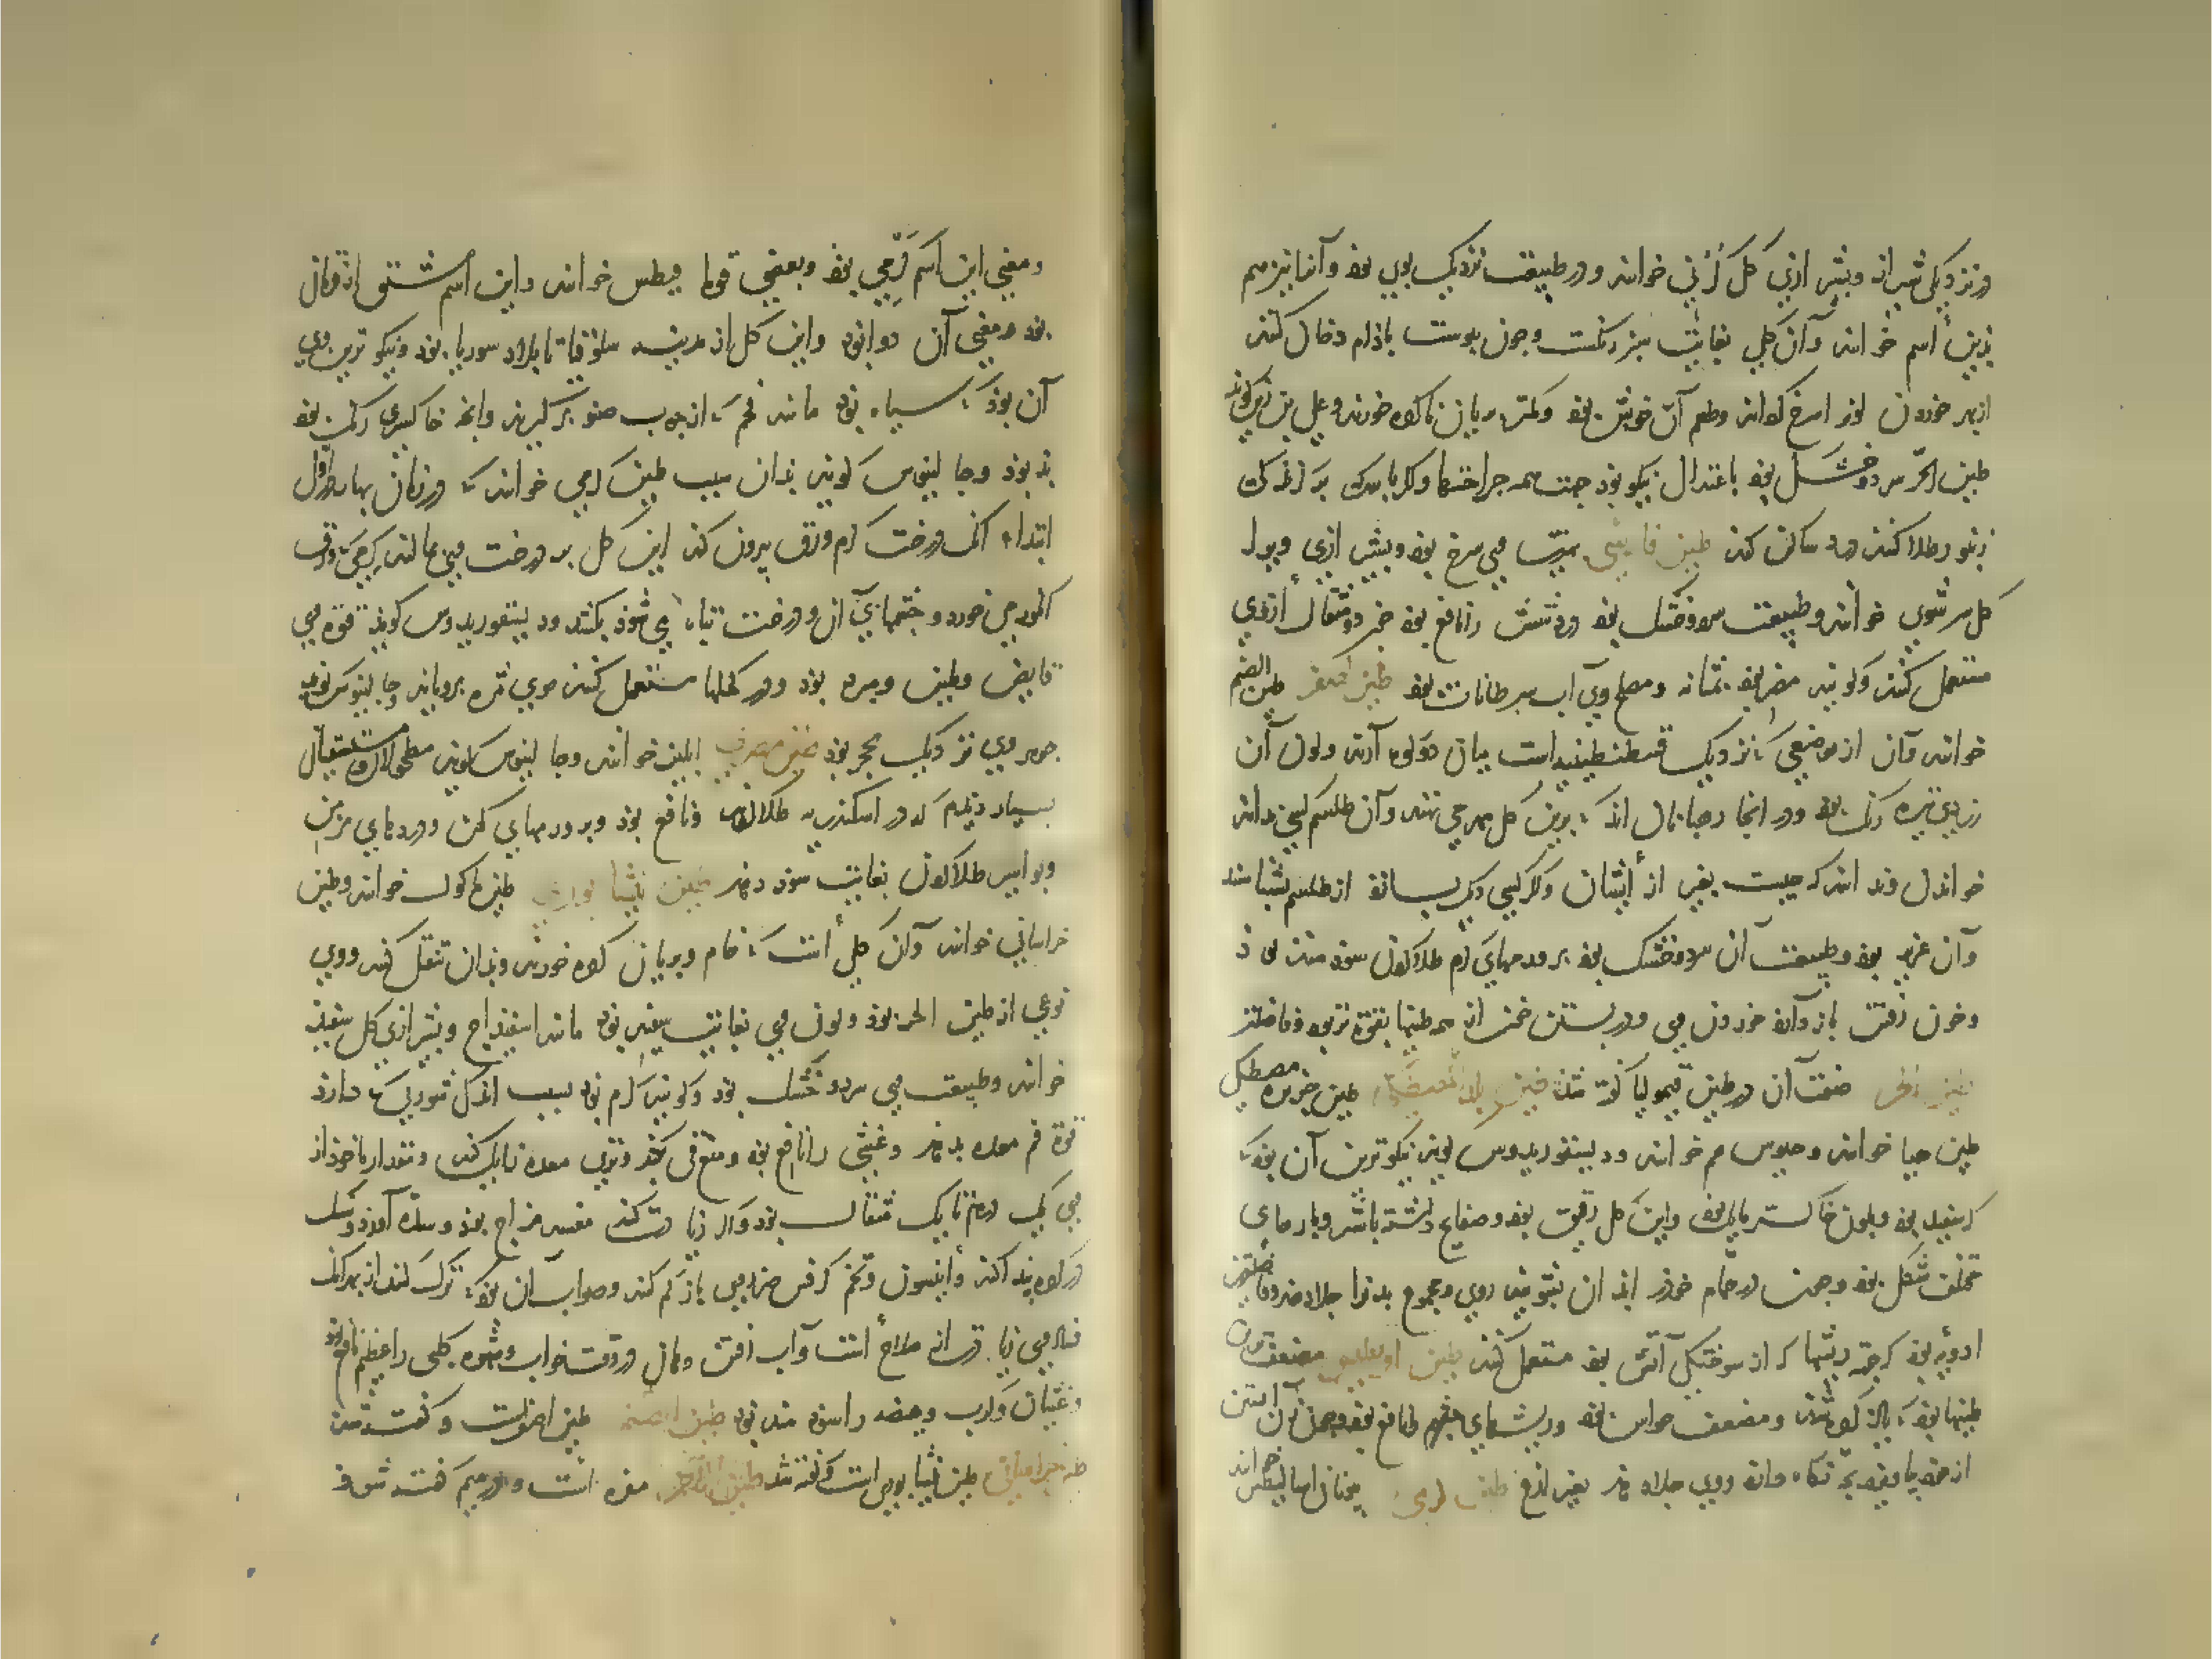 در نزدیکی شیراز و بشیرازی کل لزنی خوانند و در طبیعت نزدیک بوی بود و آنرا نیز هم
بدین اسم خوانند و آن کلی بغایت سبز رنکست و چون پوست بادام دخال کنند
از بهر خوردن لونرا سرخ کرداند و طعم آن خوش بود و کمتر بریان ناکرده خورند
طین الحر سرد و خشک بود باعتدال نیکو بود جهت همه جراحتها و اکر با سرکه بر لذع کرک
زنبور طلا کنند درد ساکن کند طین قانی بپارسی سرخ بود و بشیرازی ویرا
کل سرشوی خوانند و طبیعت سرد و خشک بود ورم شش را نافع بود خمر دو مثقال از وی
مستعمل کنند و کویند مضر بود بمثانه و مصلح وی آب سرطانات بود طین اصفر طین الصنم
خوانند و آن از موضعی که نزدیک قسطنطینیه است میان دو کوه آرند و لون آن
زردی تیره رنک بود و در آنجا رهبانان اند که برین کل مهر می نهند و آن طلسم کسی نداند
خواندن و نداند که چیست بغیر از ایشان و اکر کسی دیکر بسازد از طلسم بشناسند
و آن عزیز بود و طبیعت آن سرد و خشک بود بر ورمهای کرم طلا کردن سود مند بود
و خون رفتن باز دارد خوردن وی و در بستن خون از همه طینها بقوت تر بود و فاضلتر
طین الحر صفت آن در طین قیمولیا کفته شد طین بلد المصطکی طین جزیره مصطکی
طین جیا خوانند و جیوس هم خوانند و دیسقوریدوس کوید نیکوترین آن بود که
که سفید بود و بلون خاکستر مایل بود و این کل رقیق بود و صفایح داشته باشد و پارهای
مختلف شکل بود و چون در حمام خود را بدان بشویند روی و مجموع بدنرا جلا دهد و فاضلتر
ادویه بود که جهت ریشها که از سوختکی آتش بود مستعمل کنند طین اوقطیس مضعف ترین
طینها بود که یاد کرده شد و مضعف حواس بود و ریشهای چشم را نافع بود و چون زن آبستن
از خود بیاویزد بچه نکاه دارد و روی جلا دهد بغیر لذع طین کرمی یونان امبالیطس خوانند
و معنی این اسم کرمی بود و بعضی قوما قیطس خوانند و این اسم مشتق از قوقال
بود و معنی آن دوا بود و این کل از مدینه سلوقیا تا بلاد سوریا بود و نیکوترین وی
آن بود که سیاه بود مانند فحم که از چوب صنوبر کیرند و آنچه خاکستری رنک بود
بد بود و جالینوس کوید بدان سبب طین کرمی خوانند که در زمان بهار در اول
ابتداء آنک درخت کرم ورق بیرون کند این کل بر درخت می مالند کرمی که ورق
انکور می خورد و چشمهای آن و درخت تباه می شود بکشد و دیسقوریدوس کوید قوة وی
قابض و ملین و مبرد بود و در کحلها مستعمل کنند موی مژه برویاند و جالینوس کوید
جوهر وی نزدیک بحجر بود طین مصری ابلیز خوانند و جالینوس کوید مطحولان و مستسقیان
بسیار دیدم که در اسکندریه طلا کردند و نافع بود و بر ورمهای کهن و دردهای مزمن
و بواسیر طلا کردن بغایت سود دهد طین نیشابوری طین ماکول خوانند و طین
خراسانی خوانند و آن کلی است که خام و بریان کرده خورند و بدان تنقل کنند و وی
نوعی از طین الحر بود و لون وی بغایت سفید بود مانند اسفیداج و بشیرازی کل سفید
خوانند و طبیعت وی سرد و خشک بود و کویند کرم بود بسبب اندک شوری که دارد
قوة فم معده بدهد و غشی را نافع بود و منع قی کند و تری معده زایل کند و مقدار ماخوذ از
وی یک درم تا یک مثقال بود و اکر زیادت کند مفسد مزاج بود و سده آورد و سنک
در کرده پیدا کند و انیسون و تخم کرفس ضرر وی باز کم کند و صواب آن بود که ترک کند از بهر آنک
فساد وی زیادت از صلاح است و آب رفتن دهان در وقت خواب و شهوة کلبی را عظیم نافع بود
و غثیان و کرب و هیضه را سود مند بود طین اصفر طین اصفر است و کفته شد
طین خراسانی طین نیشابوری است و کفته شد طین الاحمر مغره است و در میم کفته شود